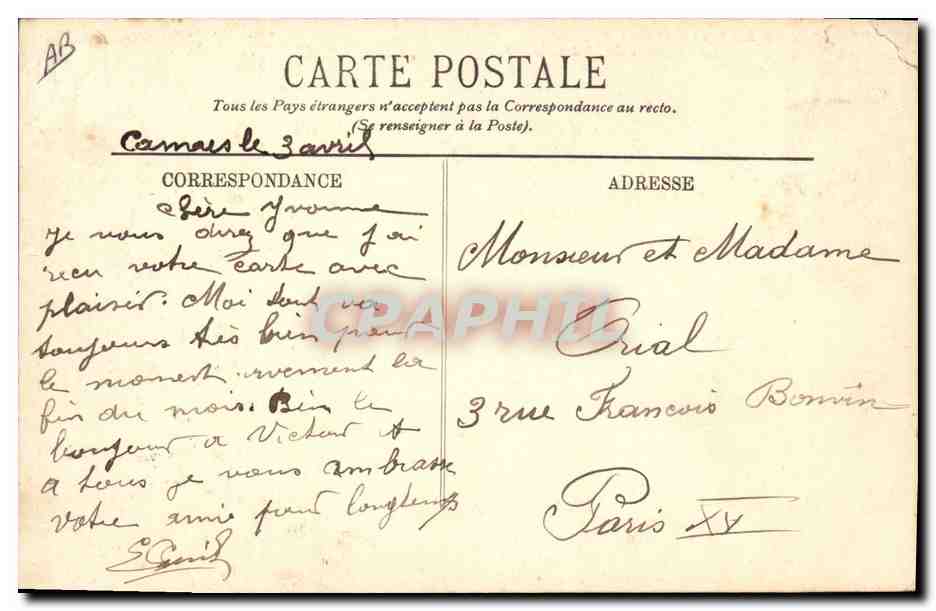 AB
CARTE POSTALE
Tous les Pays étrangers n'acceptent pas la Correspondance au recto.
(Se renseigner à la Poste).
le 3 avril
CORRESPONDANCE
chère Yvonne
je vous direz que j'ai
recu votre carte avec
plaisir. Moi tout va
toujours très bien pour
le moment vement la
fin du mois. Bien le
bonjour a Victor et
a tous je vous embrasse
votre amie pour longtemps
ADRESSE
Monsieur et Madame
Orial
3 rue Francois Bonvin
Paris XV
CPAPHIL